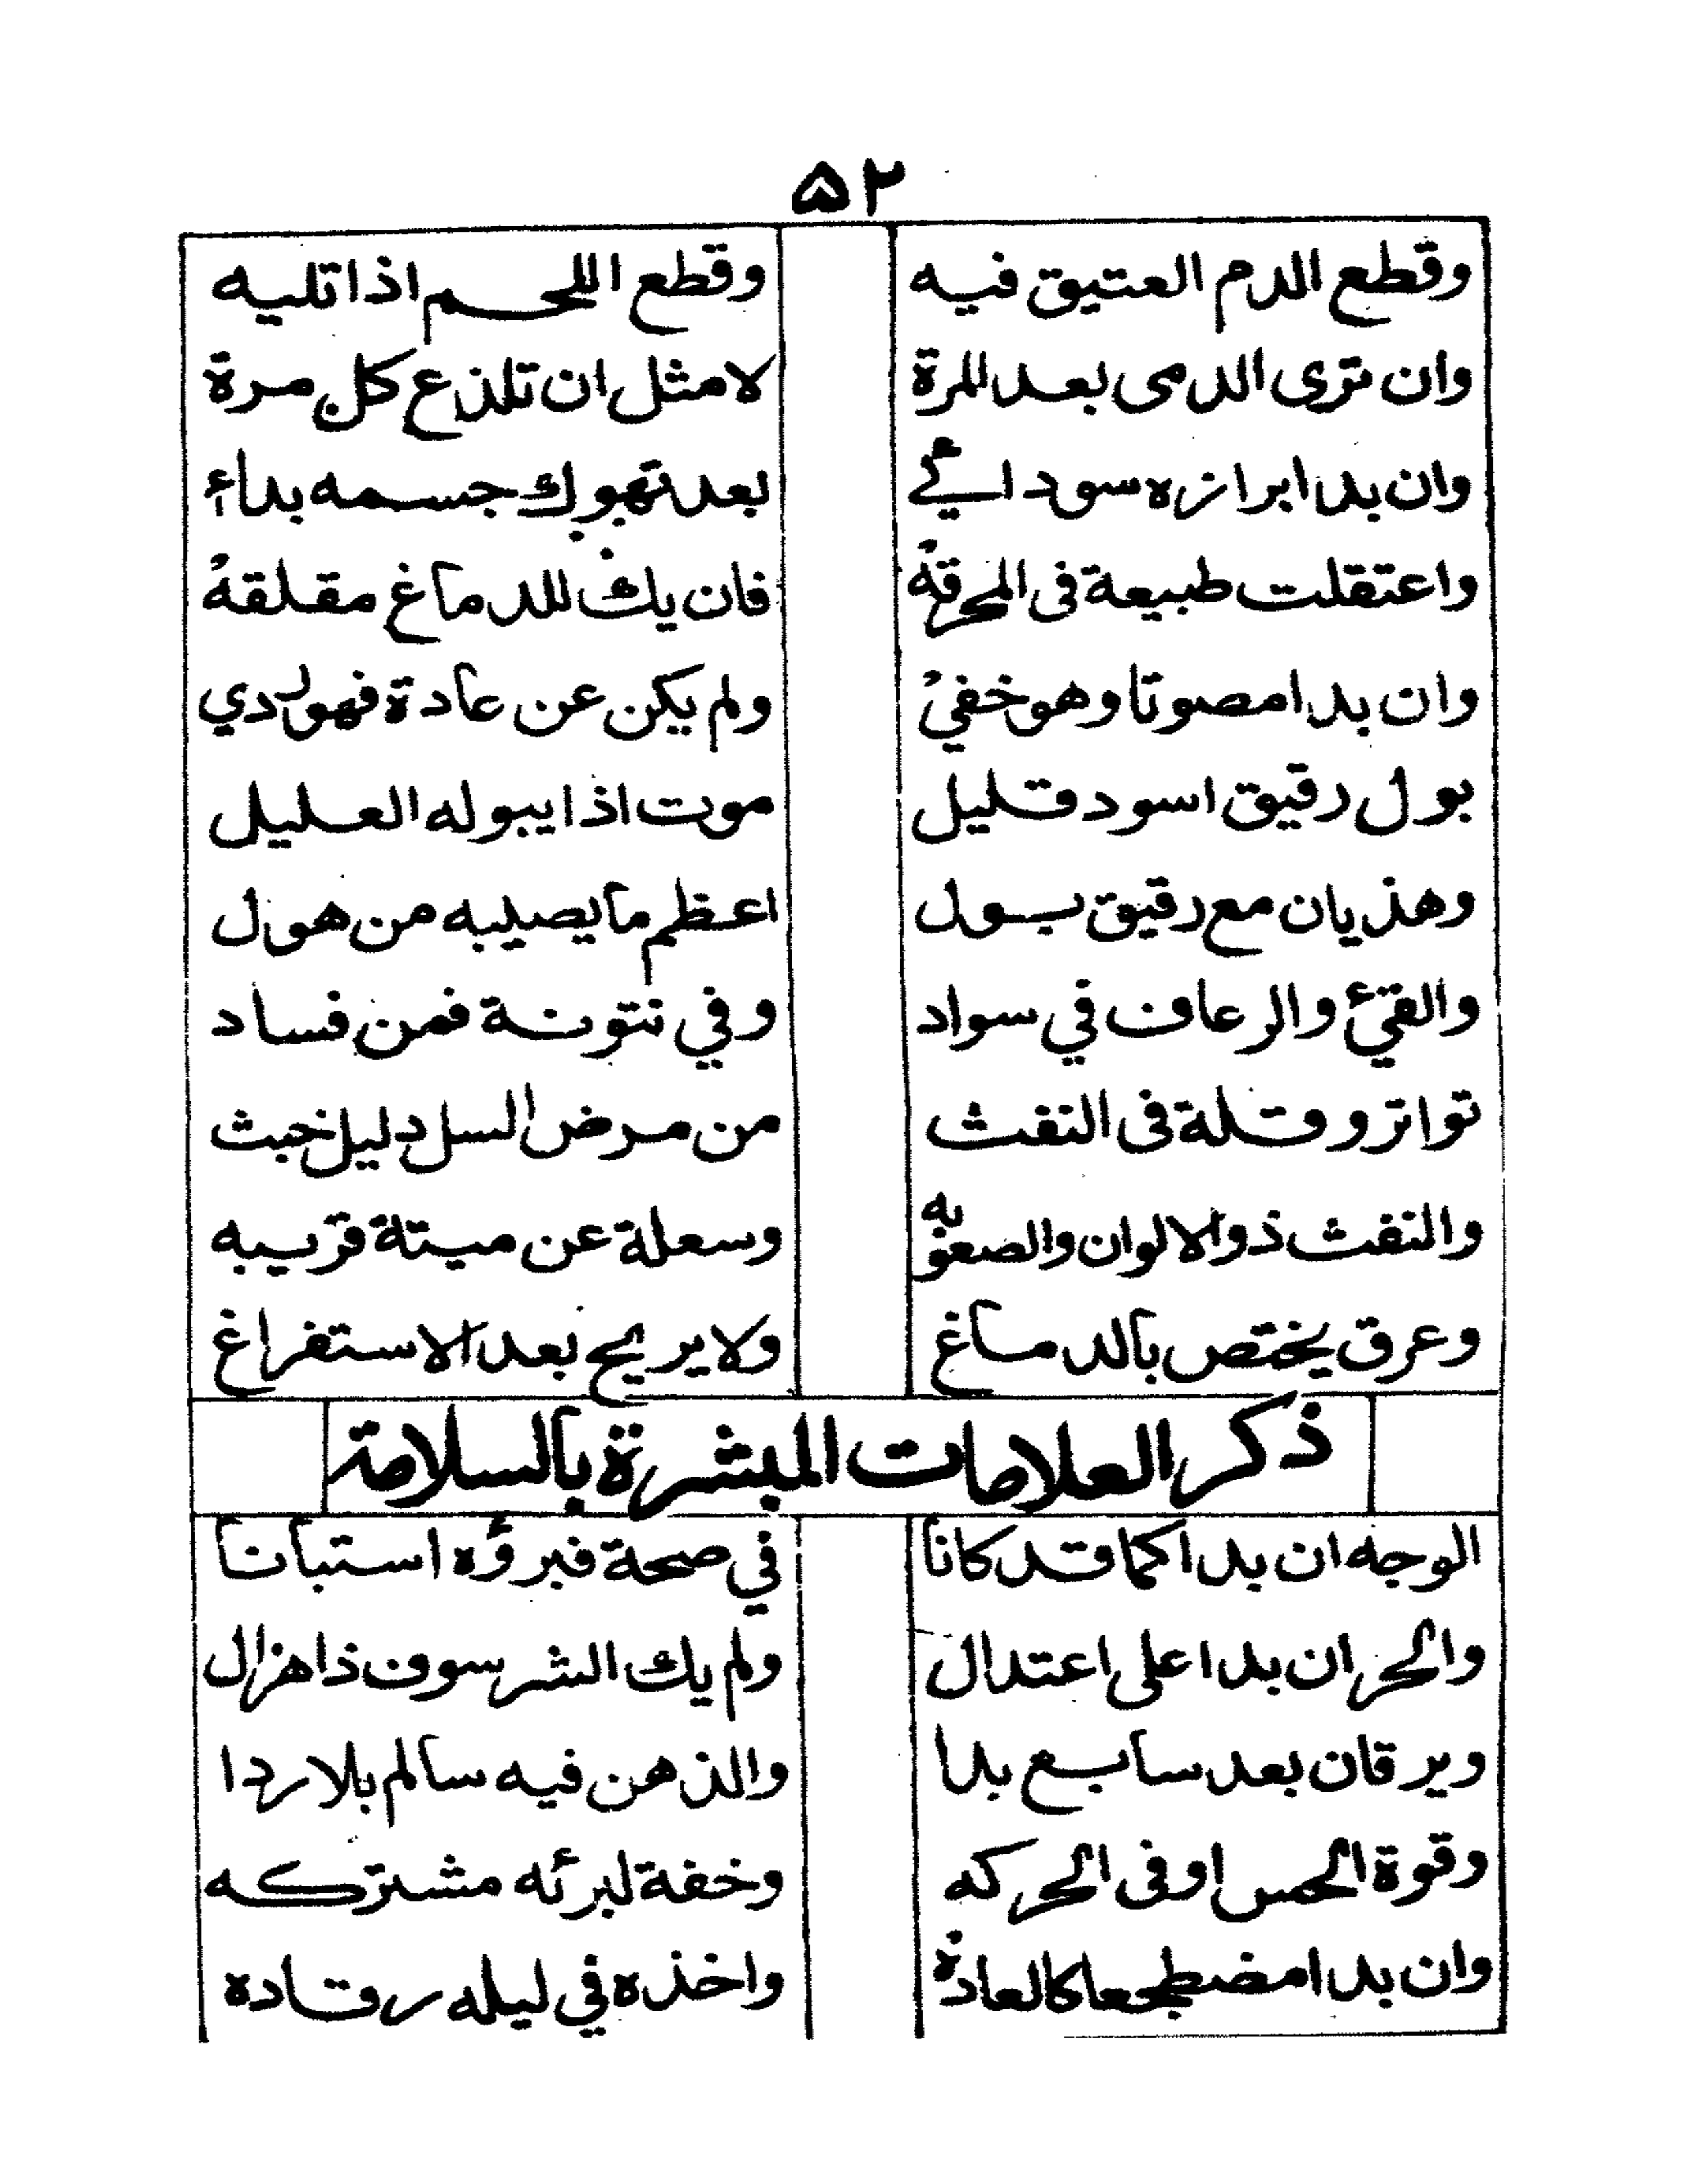 ۵۲
وقطع الدم العتيق فيه وقطع اللحم اذا تليه
وان ترى الدمى بعد المرة لا مثل ان تلذع كل مرة
وان بدا ابرازه سودائي بعد نهوك جسمه بداء
واعتقلت طبيعة فى المحرقهْ فان يك للدماغ مقلقهْ
وان بدا مصوتا وهو خفيْ ولم يكن عن عادة فهو ردي
بول رقيق اسود قليل موت اذا يبوله العليل
وهذيان مع رقيق بول اعظم ما يصيبه من هول
والقيئ والرعاف في سواد وفي نتونة فمن فساد
تواتر وقلة فى النفث من مرض السل دليل خبث
والنفث ذوالالوان والصعوبه وسعلة عن ميتة قريبه
وعرق يختص بالدماغ ولا يريح بعد الاستفراغ
ذكر العلامات المبشرة بالسلامة
الوجه ان بدا كما قد كانا في صحة فبرؤه استبانا
والحر ان بدا على اعتدال ولم يك الشرسوف ذا هزال
ويرقان بعد سابع بدا والذهن فيه سالم بلا ردا
وقوة الحس او فى الحركه وخفة لبرئه مشتركه
وان بدا مضطجعا كالعادة واخذه في ليله رقاده